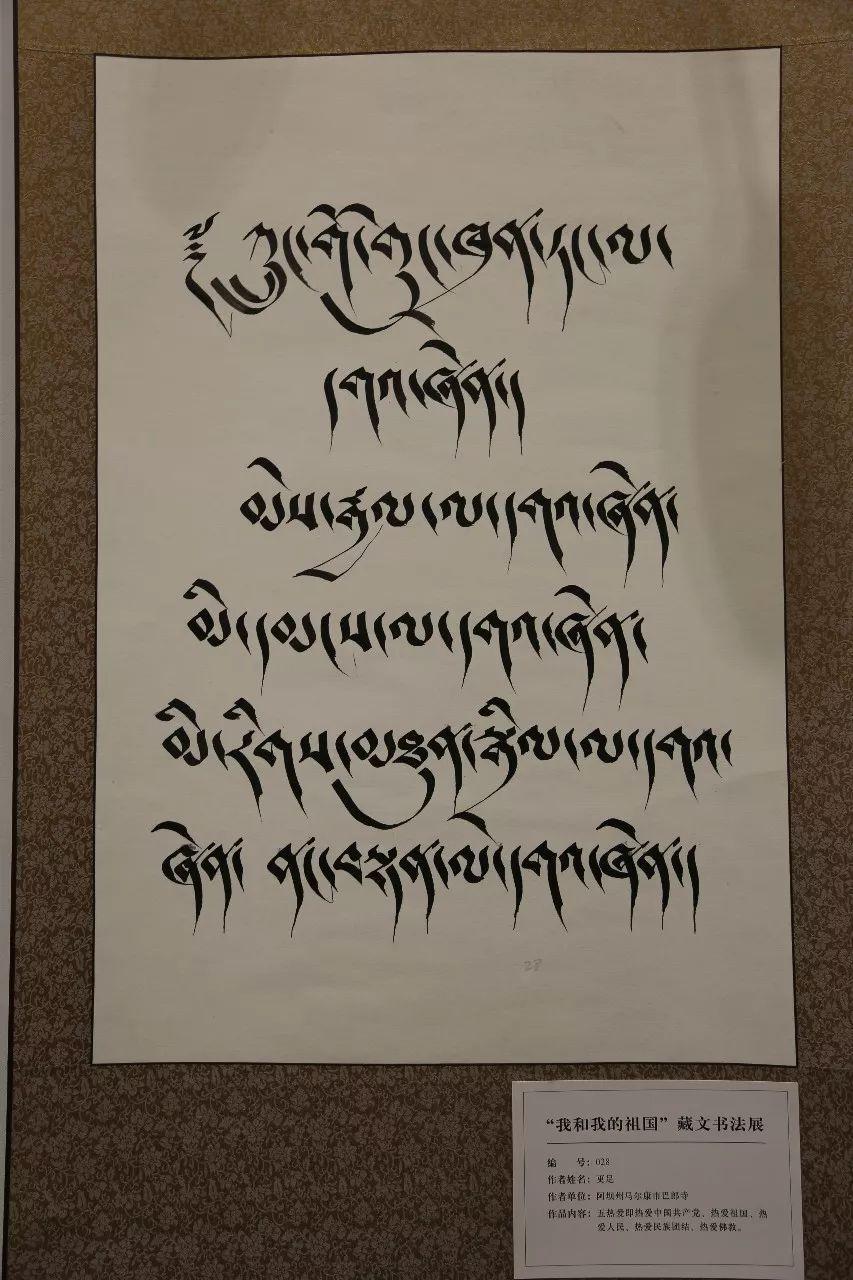 ༄༅ ཀྲུང་གོ་གུང་ཁྲན་ཏང་ལ་
དགའ་ཞེན།
མེས་རྒྱལ་ལ་དགའ་ཞེན་
མི་དམངས་ལ་དགའ་ཞེན་
མི་རིགས་མཐུན་སྒྲིལ་ལ་དགའ་
ཞེན། ནང་བསྟན་ལ་དགའ་ཞེན།
28
“我和我的祖国”藏文书法展
编 号：028
作者姓名：更足
作者单位：阿坝州马尔康市巴郎寺
作品内容：五热爱即热爱中国共产党、热爱祖国、热
爱人民、热爱民族团结、热爱佛教。